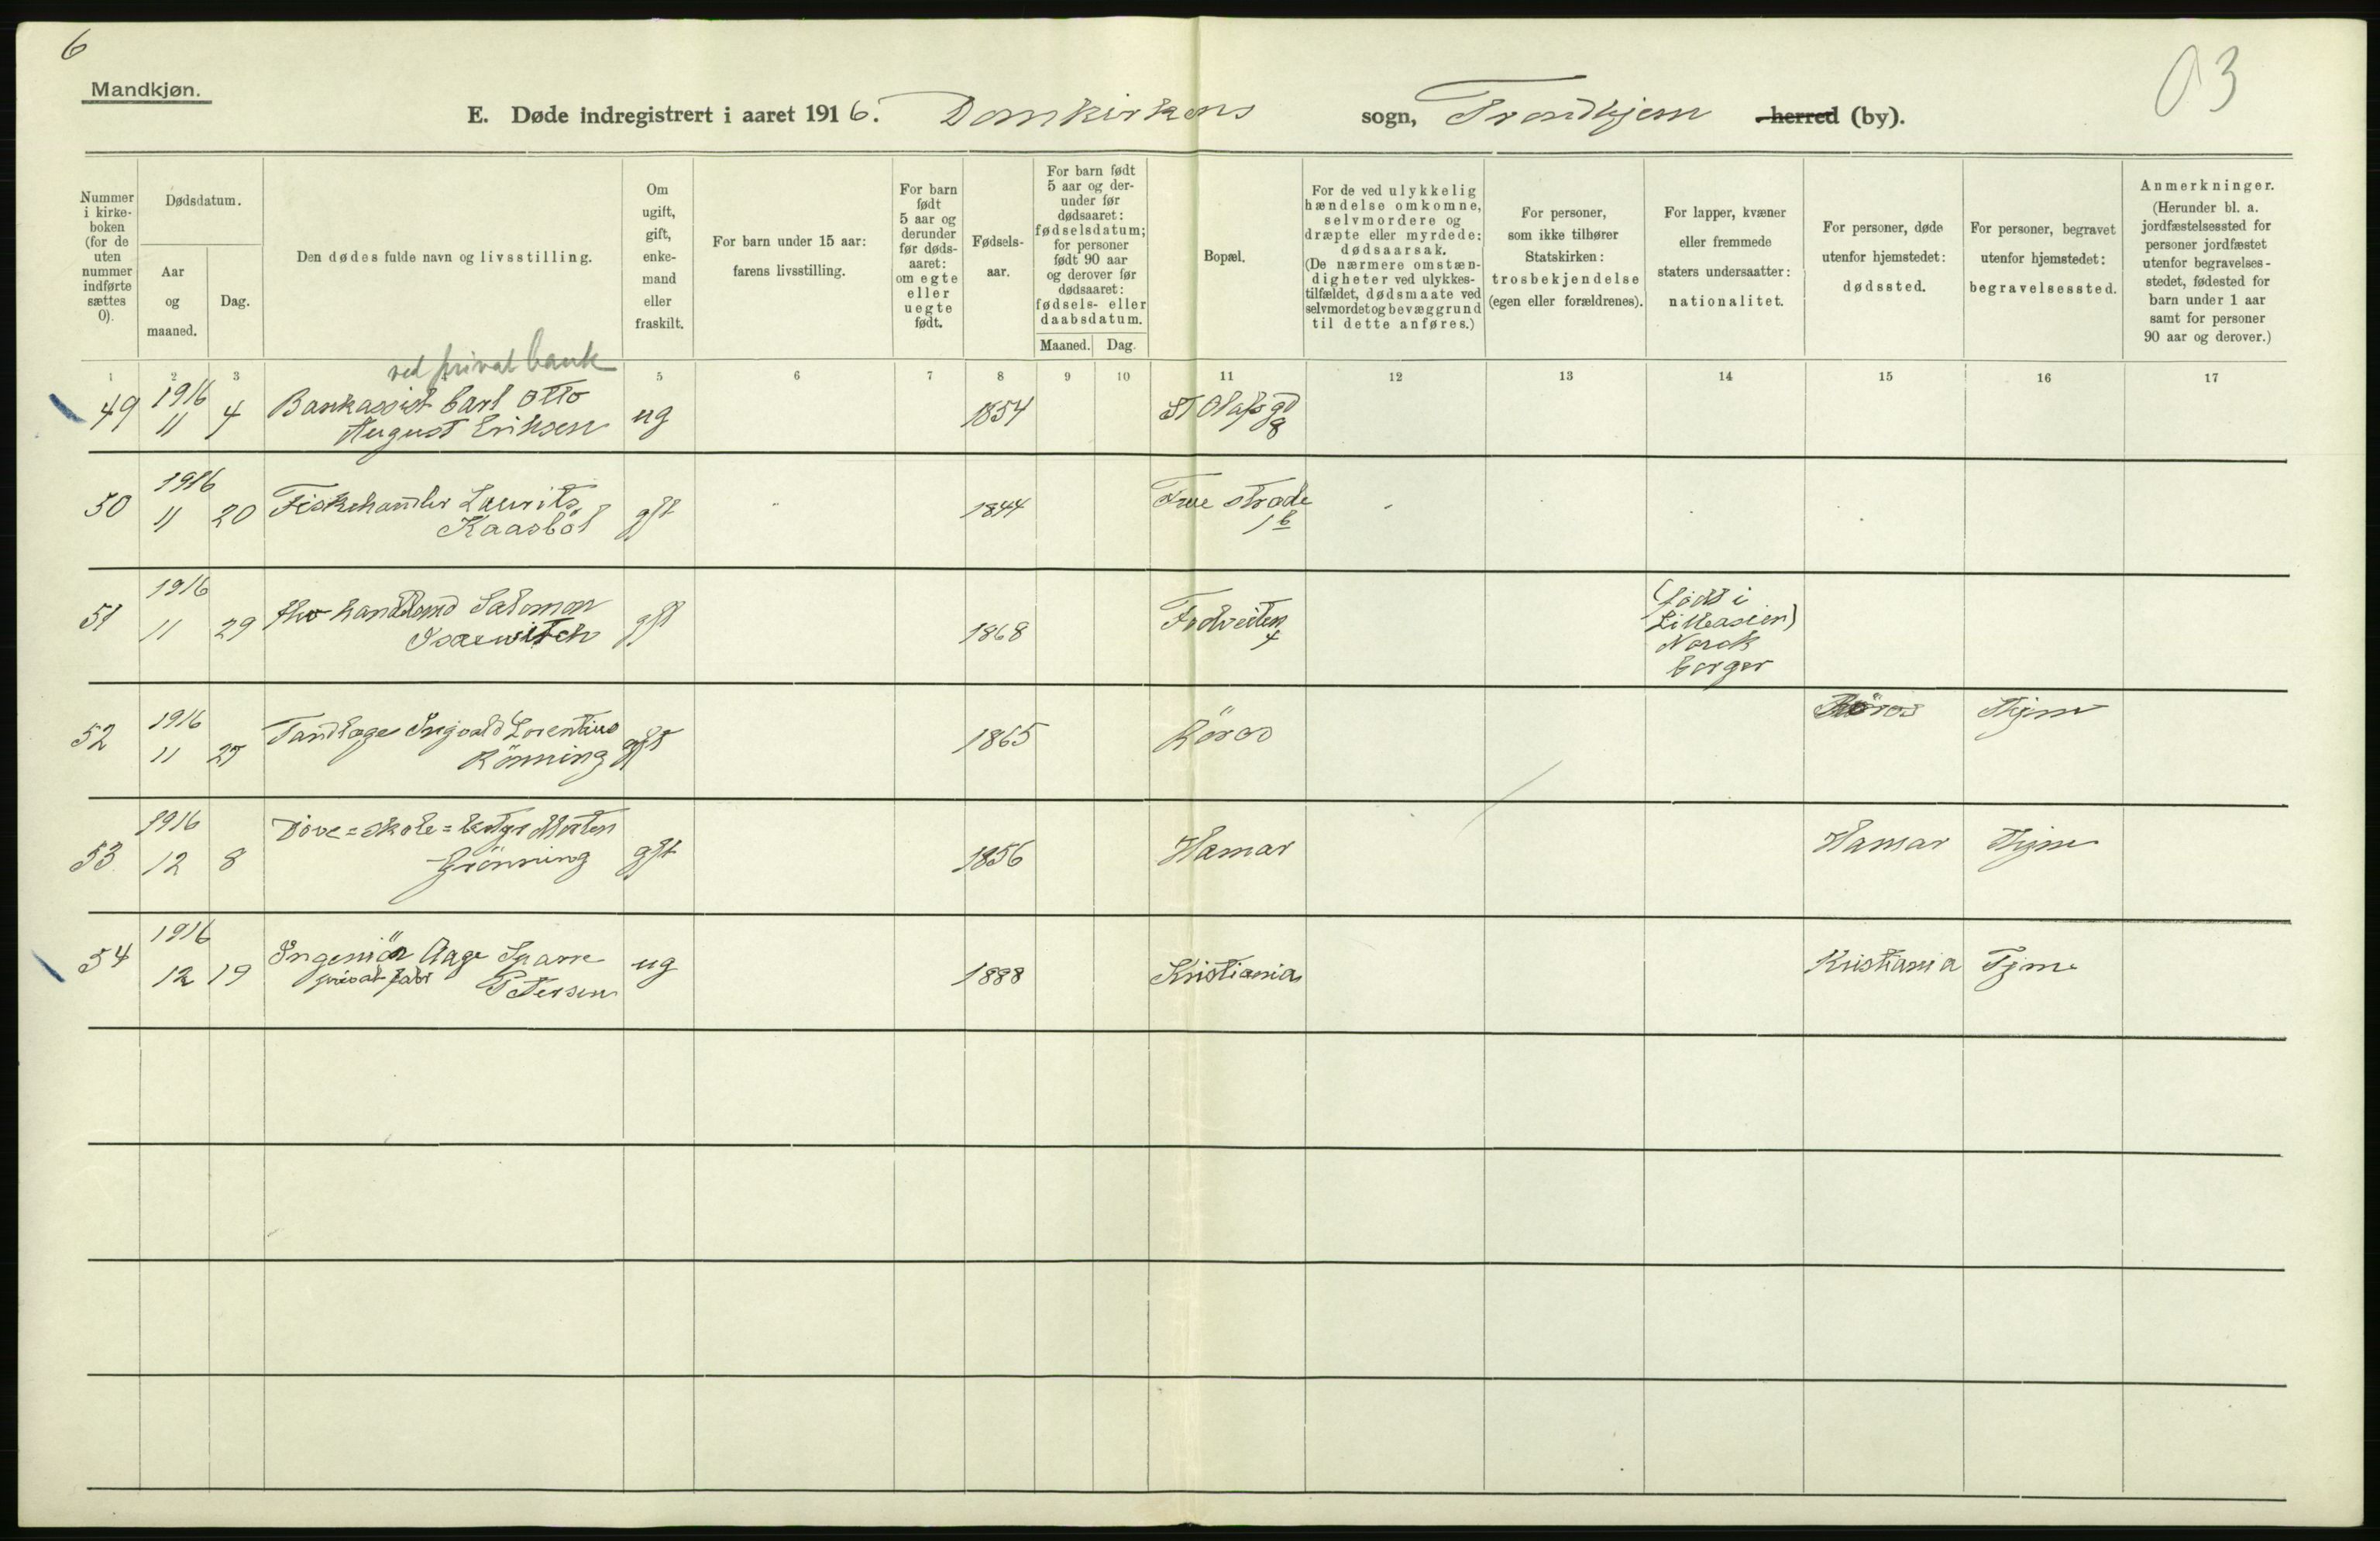 6
03
Mandkjøn.
E. Døde indregistrert i aaret 1916. Domkirkens sogn, Trondhjem herred (by).
Nummer i kirke-boken (for de uten nummer indførte sættes 0).
Dødsdatum.
Aar og maaned.
Dag.
Den dødes fulde navn og livsstilling.
Om ugift, gift, enke-mand eller fraskilt.
For barn under 15 aar: farens livsstilling.
For barn født 5 aar og derunder før døds-aaret: om egte eller uegte født.
Fødsels-aar.
For barn født 5 aar og der-under før dødsaaret: fødselsdatum; for personer født 90 aar og derover før dødsaaret: fødsels- eller daabsdatum.
Maaned.
Dag.
Bopæl.
For de ved ulykkelig hændelse omkomne, selvmordere og dræpte eller myrdede: dødsaarsak. (De nærmere omstæn-digheter ved ulykkes-tilfældet, dødsmaate ved selvmordet og bevæggrund til dette anføres.)
For personer, som ikke tilhører Statskirken: trosbekjendelse (egen eller forældrenes).
For lapper, kvæner eller fremmede staters undersaatter: nationalitet.
For personer, døde utenfor hjemstedet: dødssted.
For personer, begravet utenfor hjemstedet: begravelsessted.
Anmerkninger. (Herunder bl. a. jordfæstelsessted for personer jordfæstet utenfor begravelses-stedet, fødested for barn under 1 aar samt for personer 90 aar og derover.)
1 2 3 5 6 7 8 9 10 11 12 13 14 15 16 17
ved privat bank
49 1916 11 4 Bankassist Carl Otto August Eriksen ug 1854 St Olafs gd 8
50 1916 11 20 Fiskehandler Laurits Kaasböl gft 1844 Frue Stræde 1 b
51 1916 11 29 handlend Salomon Isaewitch gft 1868 4 (född i Lilleasien) Norsk borger
52 1916 11 25 Tandlæge Ingvald Lorentius Rönning gft 1865 Röros Röros Thjm
53 1916 12 8 Döve=skole= Morten Grönning gft 1856 Hamar Hamar Thjm
54 1916 12 19 Ingeniör Aage Sparre Petersen privat fabr ug 1888 Kristiania Kristiania Tjm